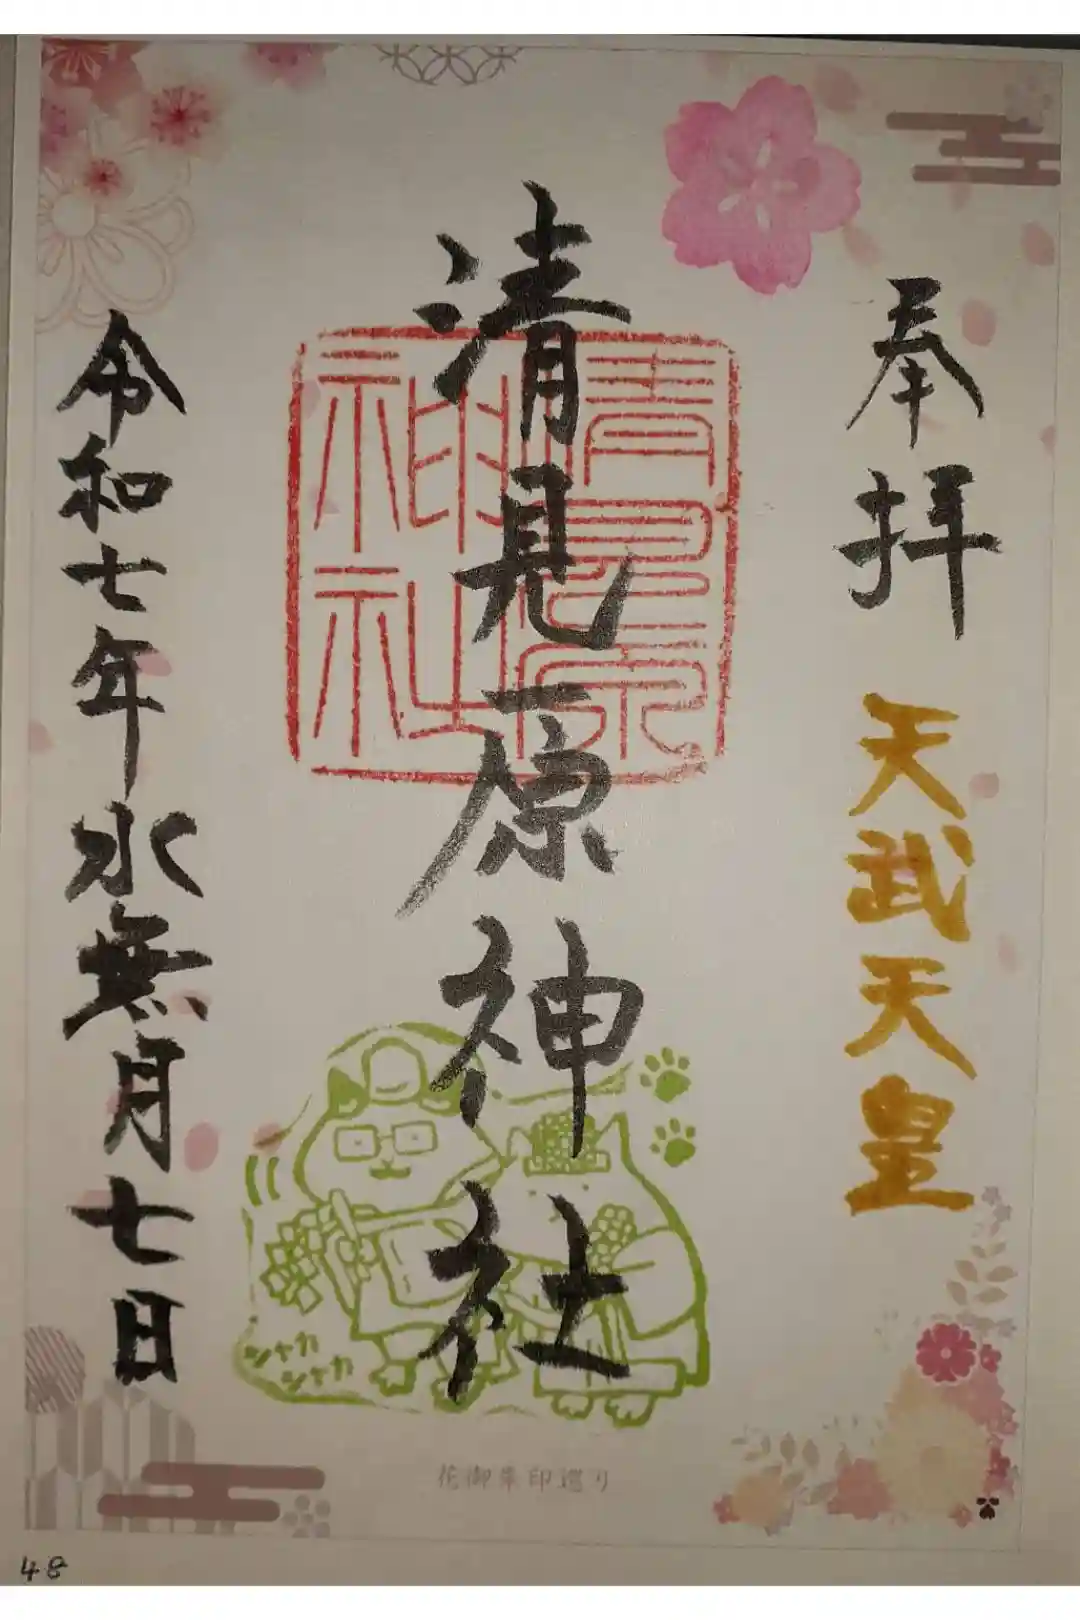 奉拝 天武天皇
清見原神社
清見原神社
令和七年水無月七日
シャカ
シャカ
花御朱印巡り
48